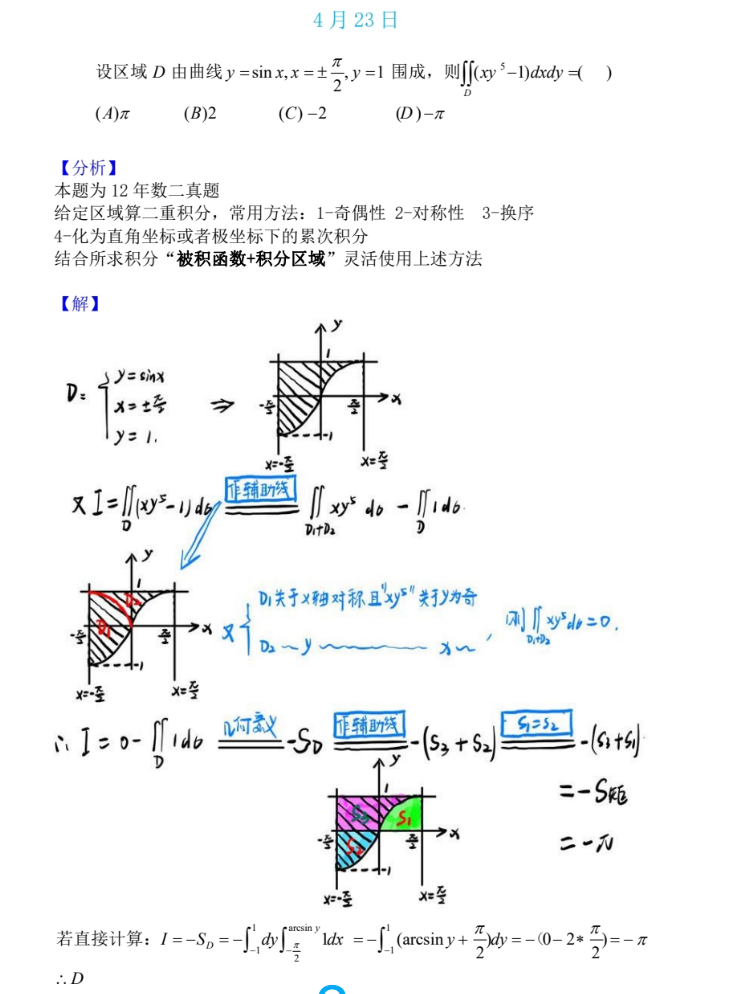 4 月 23 日
设区域 D 由曲线 y = sin x, x = ± π/2, y = 1 围成，则∬_D (xy^5 −1)dxdy =( )
(A)π (B)2 (C) −2 (D) −π
【分析】
本题为 12 年数二真题
给定区域算二重积分，常用方法：1-奇偶性 2-对称性 3-换序
4-化为直角坐标或者极坐标下的累次积分
结合所求积分“被积函数+积分区域”灵活使用上述方法
【解】
D: { y = sinx
x = ± π/2
y = 1.
⇒
y
1
-π/2
π/2
x
-1
x=-π/2
x=π/2
又 I = ∬_D (xy^5 -1) dσ 作辅助线 ∬_{D1+D2} xy^5 dσ - ∬_D 1 dσ.
y
1
D2
D1
-π/2
π/2
x
-1
x=-π/2
x=π/2
又 { D1关于x轴对称且"xy^5"关于y为奇
D2 ~ y ~ x ~
, 则 ∬_{D1+D2} xy^5 dσ = 0.
∴ I = 0 - ∬_D 1 dσ 几何意义 -S_D 作辅助线 -(S3 + S2) S1=S2 -(S3+S1)
= -S矩
= -π
y
1
S3
S1
S2
-π/2
π/2
x
-1
x=-π/2
x=π/2
若直接计算：I = −S_D = −∫_{-1}^{1} dy ∫_{-π/2}^{arcsin y} 1dx = −∫_{-1}^{1} (arcsin y + π/2)dy = −(0−2* π/2) = −π
∴ D